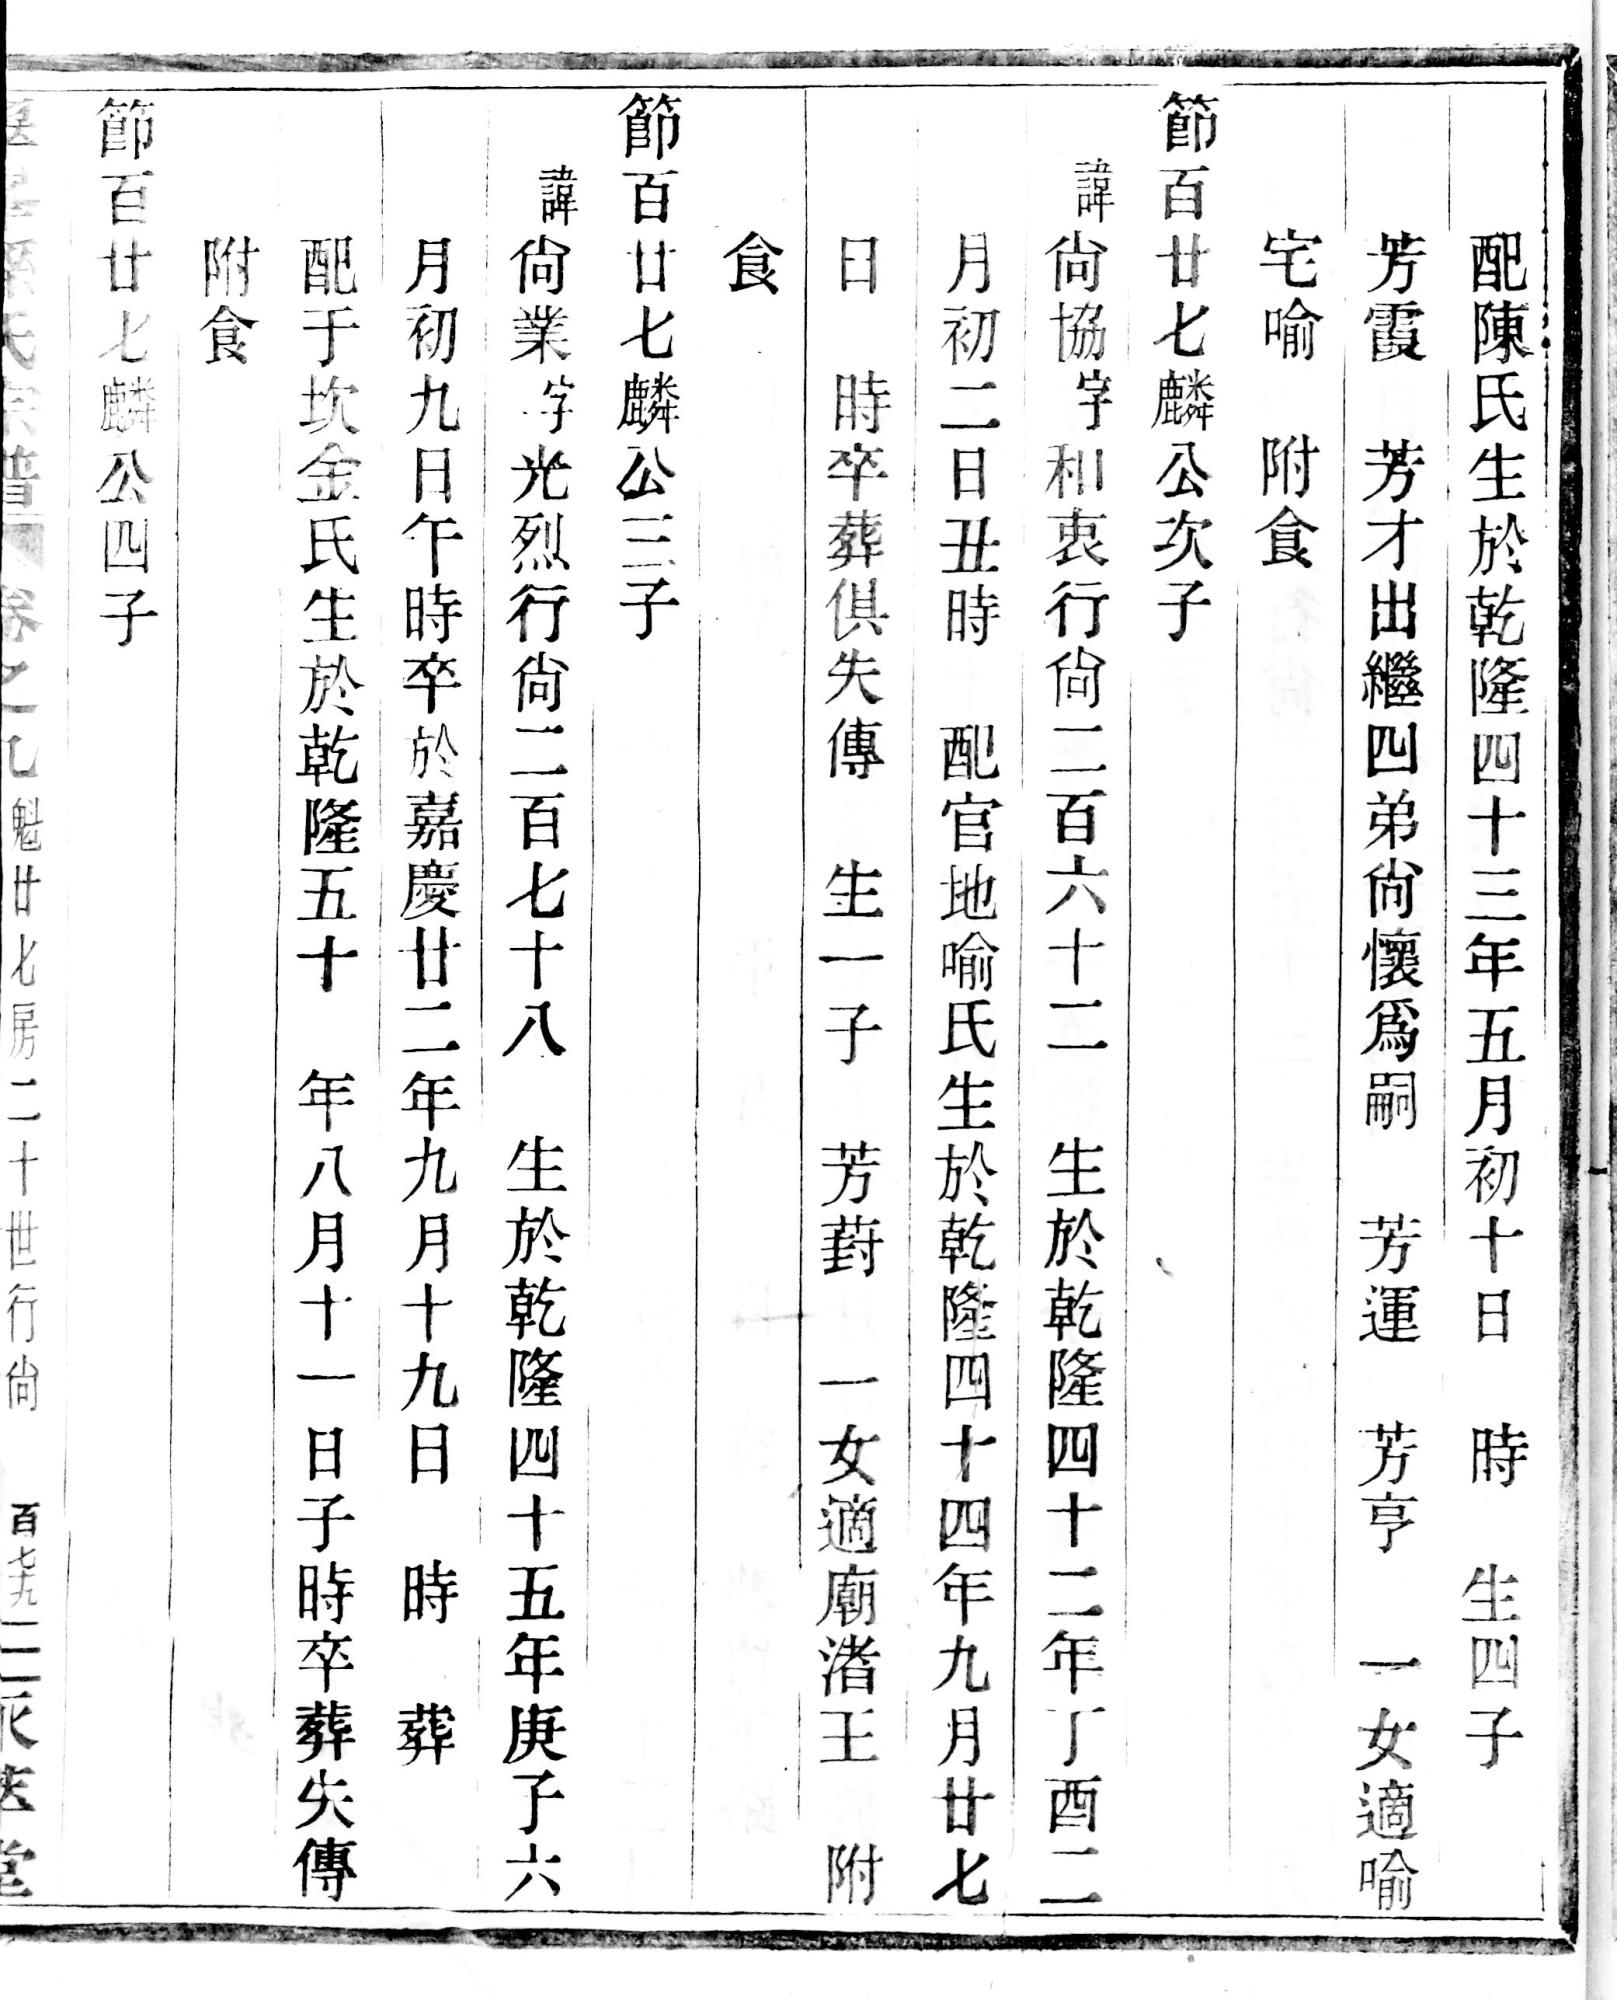 配陳氏生於乾隆四十三年五月初十日　時　生四子
芳霞　芳才出繼四弟尙懷爲嗣　芳運　芳亨　一女適喻
宅喻　附食
節百廿七麟公次子
諱尙協字和衷行尙二百六十二　生於乾隆四十二年丁酉二
月初二日丑時　配官地喻氏生於乾隆四十四年九月廿七
日　時卒葬俱失傳　生一子　芳葑　一女適廟渚王　附
食
節百廿七麟公三子
諱尙業字光烈行尙二百七十八　生於乾隆四十五年庚子六
月初九日午時卒於嘉慶廿二年九月十九日　時　葬
配于坎金氏生於乾隆五十　年八月十一日子時卒葬失傳
附食
節百廿七麟公四子
氏宗譜　卷之九　魁廿七房二十世行尙　百七十九　堂